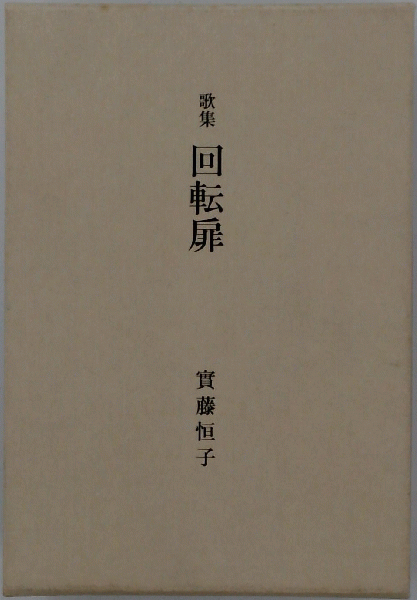 歌集 回転扉
實藤恒子